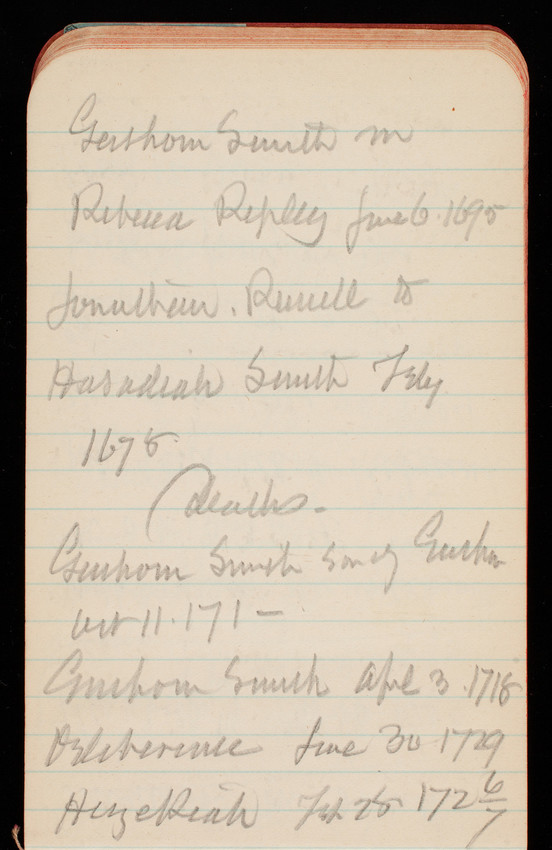 Gershom Smith m
Rebecca Ripley June 6. 1695
Jonathan. Russell to
Hasadiah Smith Feby
1678
Deaths.
Gershom Smith son of Gershom
Oct 11. 171–
Gershom Smith Apl 3. 1718
Deliverence June 30 1729
Hezekiah Feb 28 172 6/7